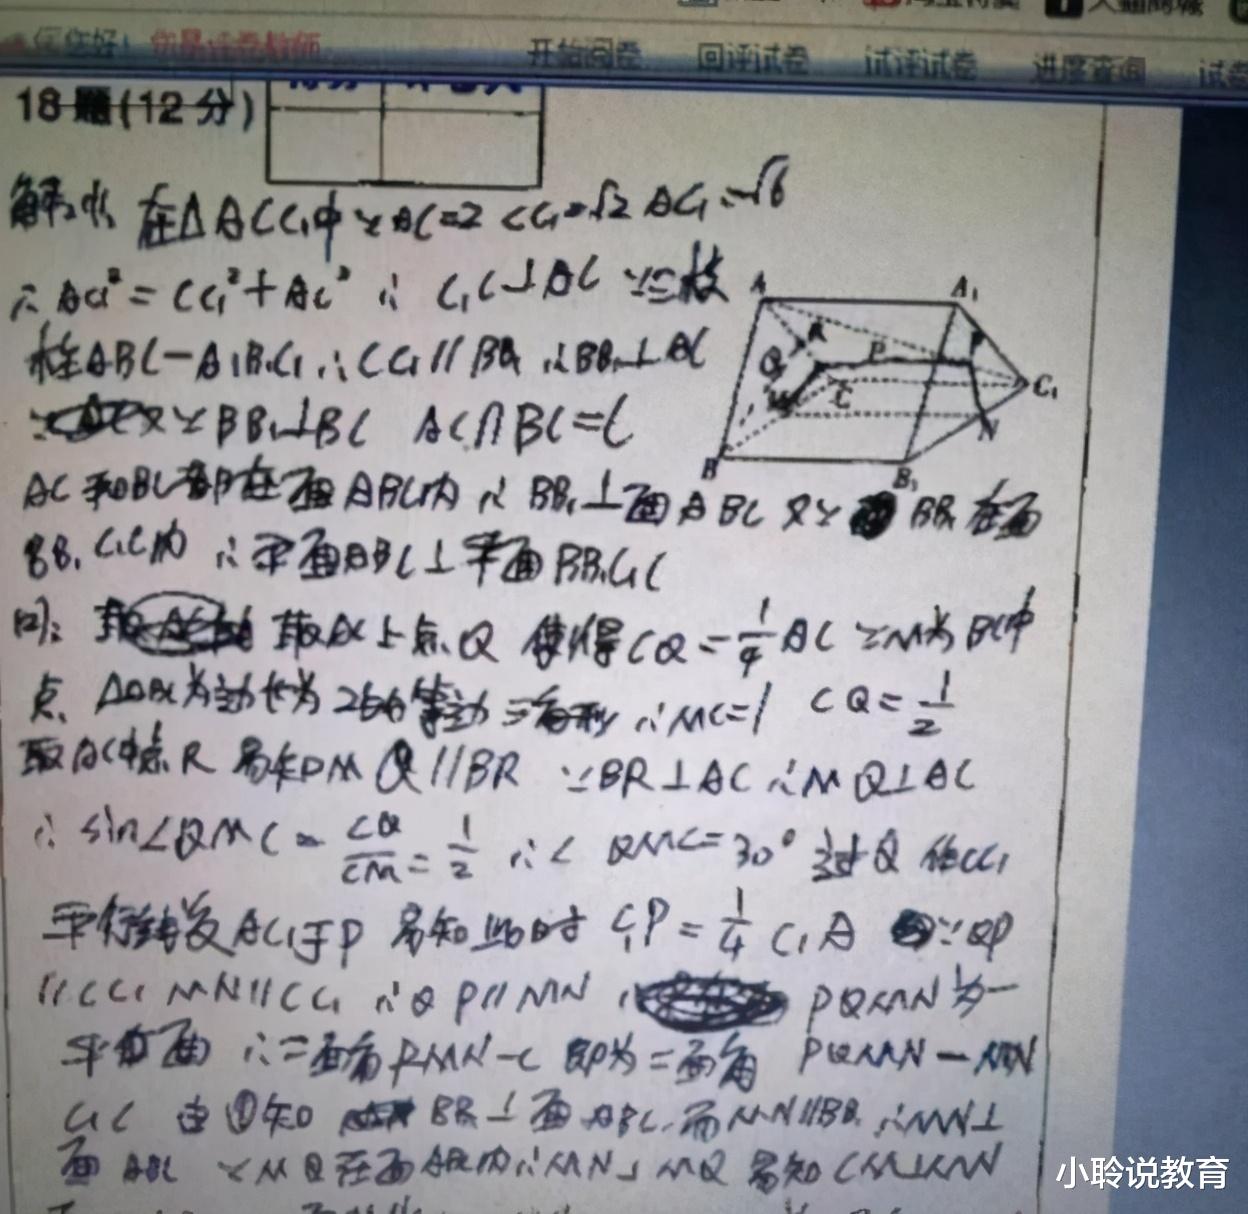 您好!
开始阅卷 回评试卷 试评试卷 进度查询 试卷
18题(12分)
解: 在△ACC₁中∵AC=2 CC₁=√2 AC₁=√6
∴AC₁²=CC₁²+AC² ∴C₁C⊥AC ∵三棱
柱ABC-A₁B₁C₁∴CC₁//BB₁∴BB₁⊥AC
又∵BB₁⊥BC AC∩BC=C
AC和BC都在面ABC内∴BB₁⊥面ABC又∵BB₁在面
BB₁C₁C内∴平面ABC⊥平面BB₁C₁C
取AC上点Q 使得CQ=1/4AC ∵M为BC中
点 △ABC为边长为2的等边三角形∴MC=1 CQ=1/2
取AC中点R 易知MQ//BR ∵BR⊥AC∴MQ⊥AC
∴sin∠QMC=CQ/CM=1/2 ∴∠QMC=30° 过Q作CC₁
平行线交AC₁于P 易知此时C₁P=1/4C₁A ∵QP
//CC₁ MN//CC₁ ∴QP//MN PQMN为一
平面∴二面角PMN-C 即为二面角PQMN-MN
C₁C 由①知 BB₁⊥面ABC,而MN//BB₁∴MN⊥
面ABC ∵MQ在面ABC内∴MN⊥MQ 易知CM⊥MN
A A₁
R
Q P
C C₁
M N
B B₁
小聆说教育